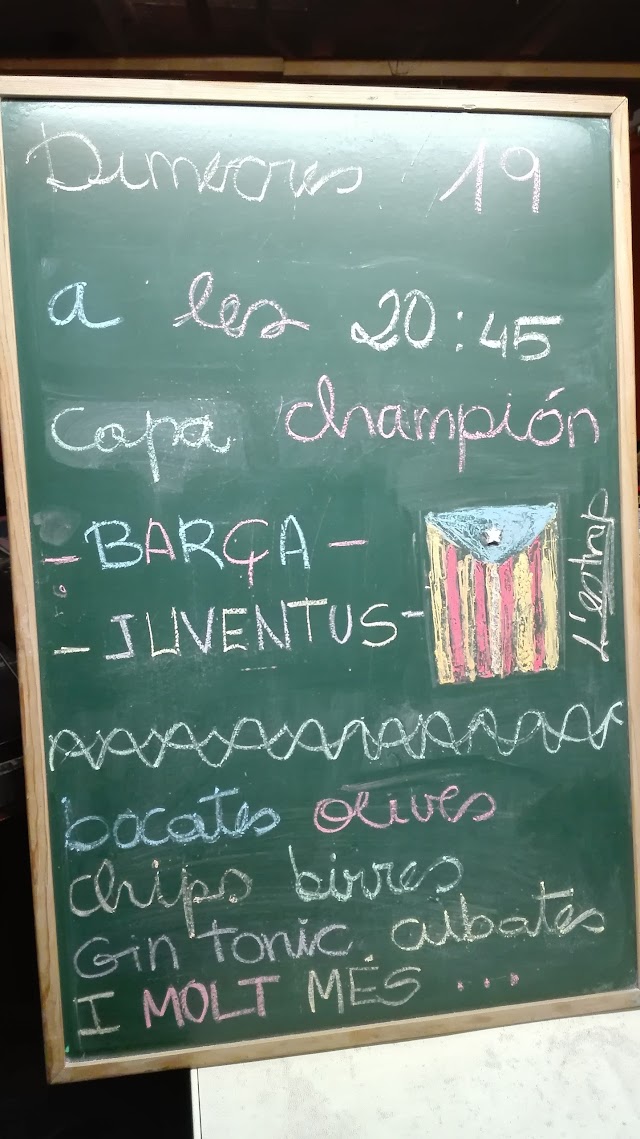 Dimecres 19
a les 20:45
copa champión
- BARÇA -
- JUVENTUS -
L'estrap
bocates olives
chips birres
Gin tonic cubates
I MOLT MÉS ...